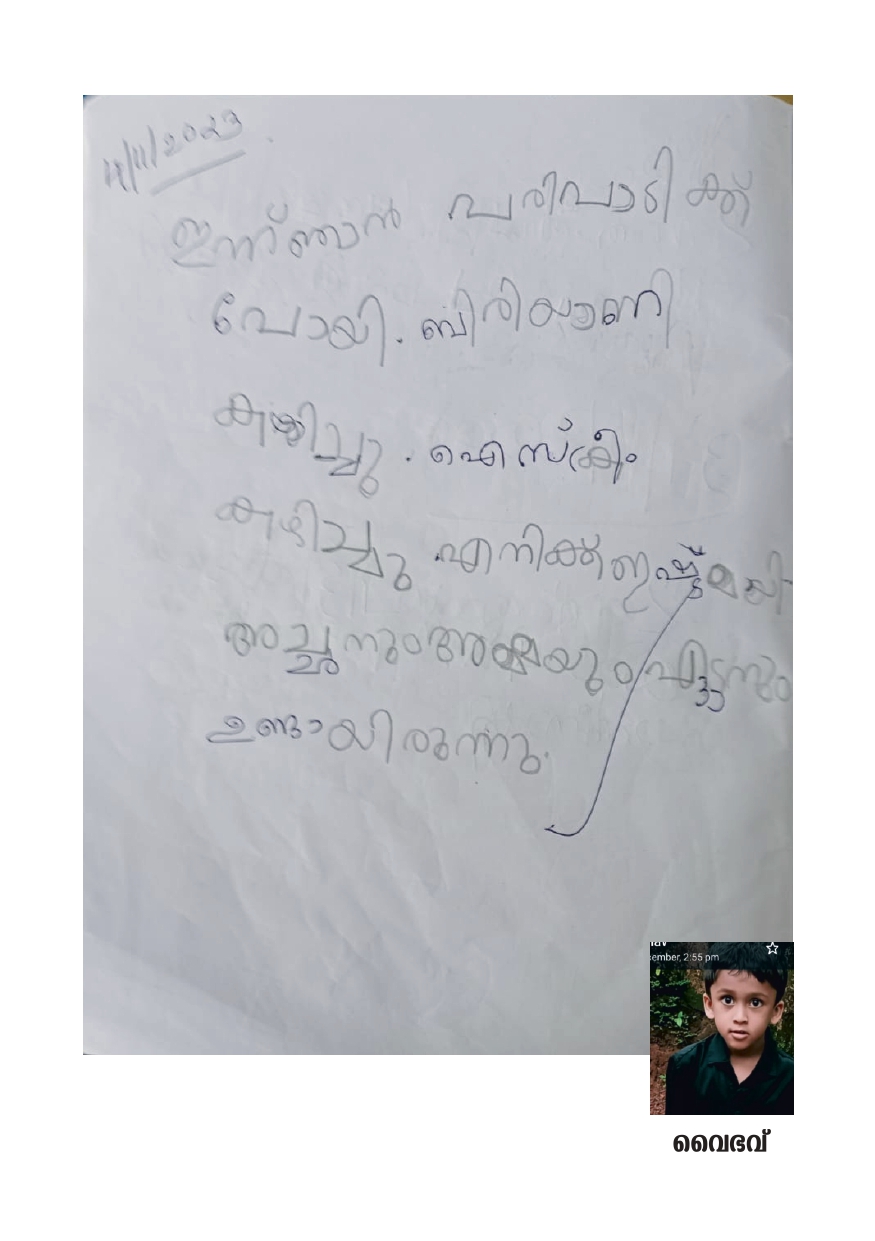 11/11/2023
ഇന്ന് ഞാൻ പരിപാടിക്ക്
പോയി. ബിരിയാണി
കഴിച്ചു. ഐസ്ക്രീം
കഴിച്ചു എനിക്ക് ഇഷ്ട്മായി
അച്ഛനും അമ്മയും ഏട്ടനും
ഉണ്ടായിരുന്നു.
sember, 2:55 pm
വൈഭവ്